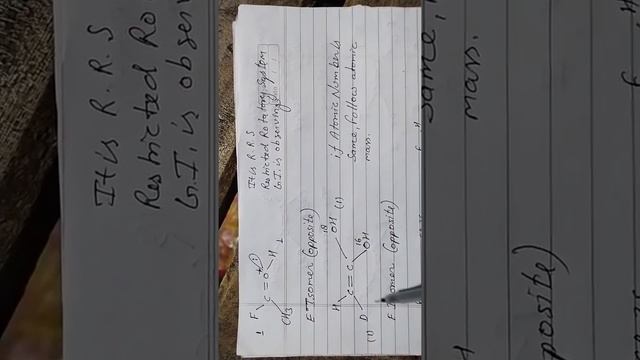 It is R.R.S
Restricted Rotatory System
G.I. is observing
F
C = O
H
CH3
1
E Isomer (opposite)
if Atomic Number is
Same, follow atomic
mass.
H
C = C
18
OH (1)
D
16
OH
(1)
E Isomer (opposite)
It is R.R.S
Restricted Ro
G.I. is obser
Same,
mass.
posite)